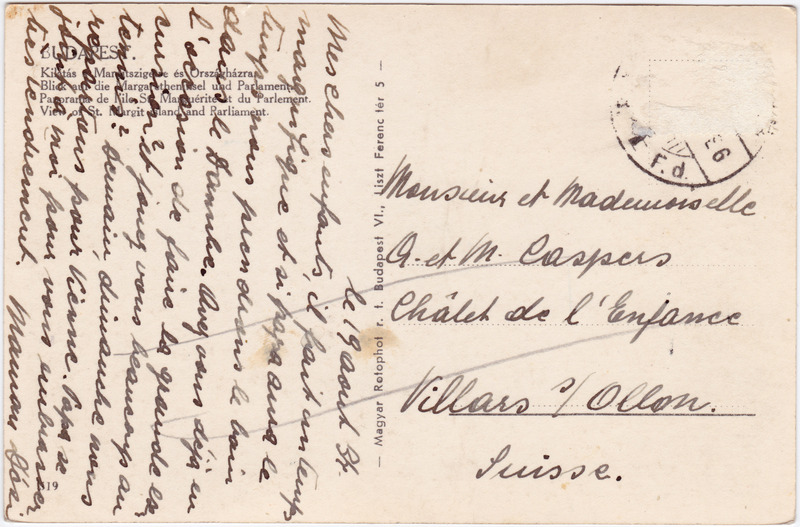 BUDAPEST.
Kilátás a Margitszigetre és Országházra.
Blick auf die Margarethen-Insel und Parlament.
Panorama de l'île St. Marguérite et du Parlement.
View of St. Margit Island and Parliament.
le 19 aout 34.
Mes chers enfants, il fait un temps
magnifique et si papa aura le
temps nous prendrons le bain
dans le Danube. Avez vous déjà eu
l'occasion de faire la grande ex-
cursion et jouez vous beaucoup au
tennis? Demain, dimanche nous
repartons pour Vienne. Papa se
joint à moi pour vous embrasser
très tendrement. Maman
519
— Magyar Rotophot r. t. Budapest VI., Liszt Ferenc tér 5 —
F.d.
Monsieur et Mademoiselle
A. et M. Caspers
Châlet de l'Enfance
Villars s/Ollon.
Suisse.